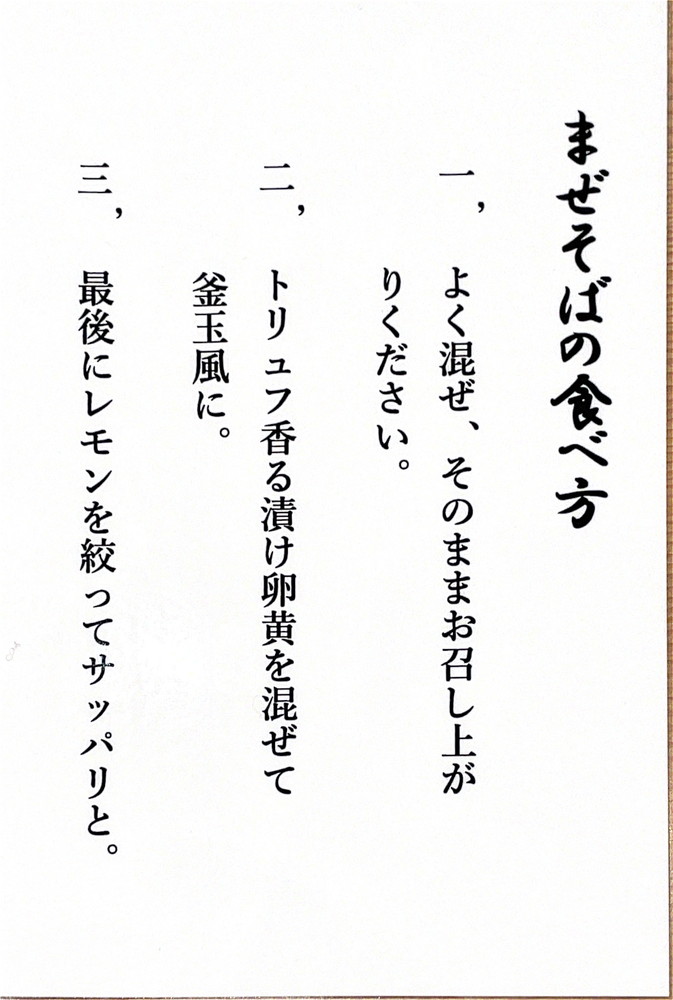 まぜそばの食べ方
一，よく混ぜ、そのままお召し上が
りください。
二，トリュフ香る漬け卵黄を混ぜて
釜玉風に。
三，最後にレモンを絞ってサッパリと。